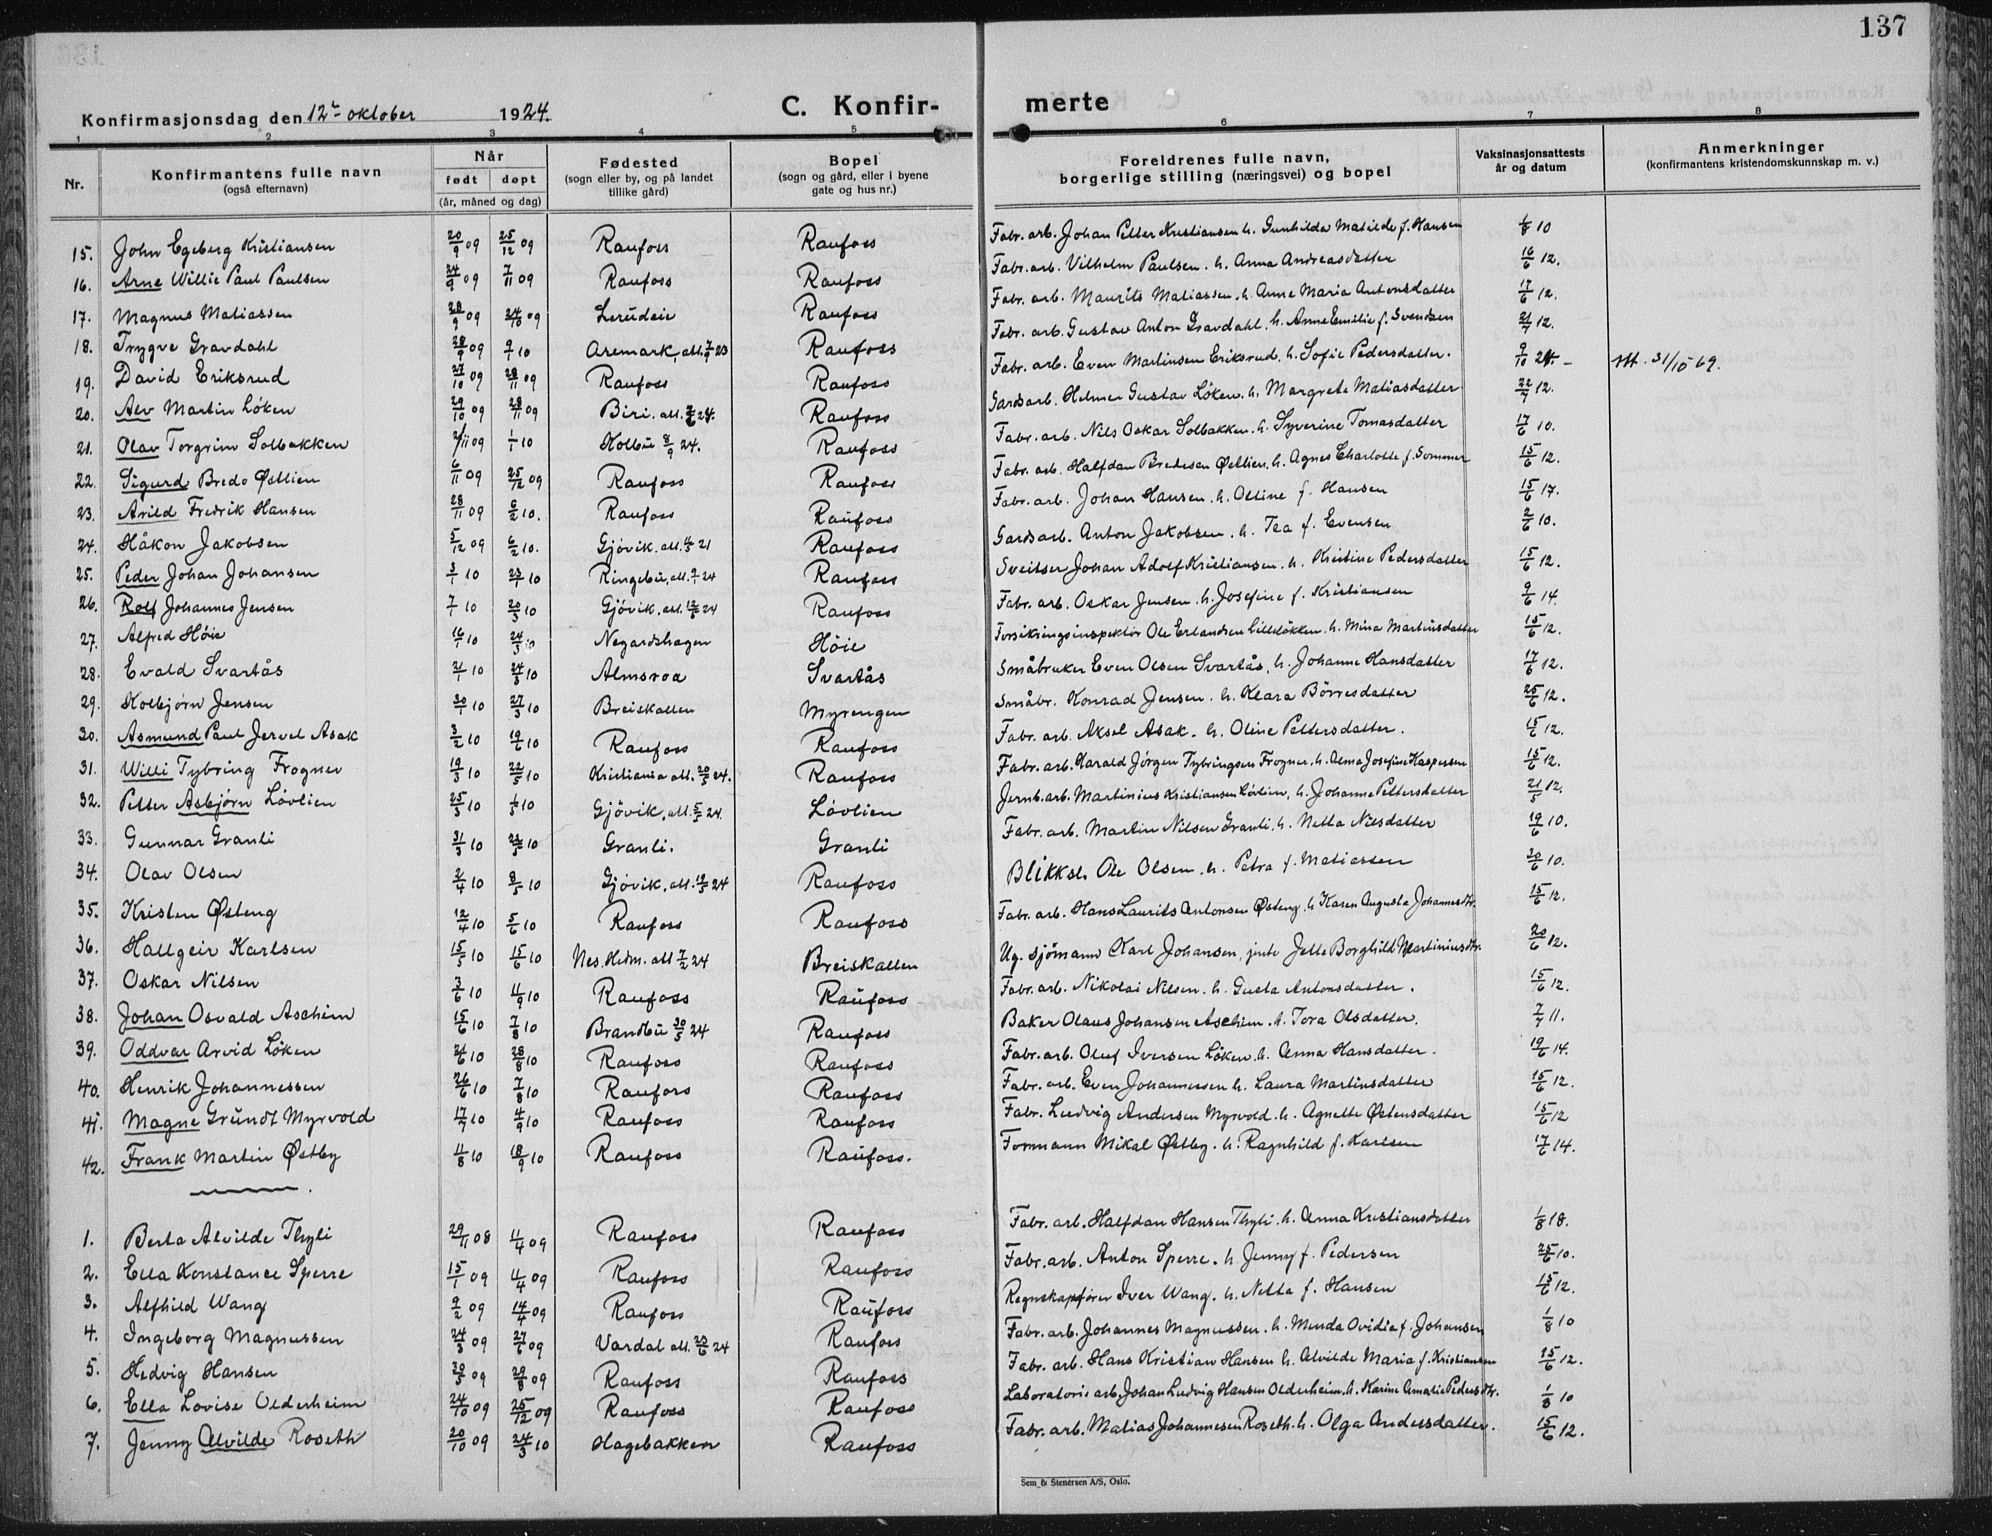 137
Konfirmasjonsdag den 12te oktober 1924.
C. Konfir- merte
1 2 3 4 5 6 7 8
Nr.
Konfirmantens fulle navn
(også efternavn)
Når
født døpt
(år, måned og dag)
Fødested
(sogn eller by, og på landet
tillike gård)
Bopel
(sogn og gård, eller i byene
gate og hus nr.)
Foreldrenes fulle navn,
borgerlige stilling (næringsvei) og bopel
Vaksinasjonsattests
år og datum
Anmerkninger
(konfirmantens kristendomskunnskap m. v.)
15. John Egeberg Kristiansen 20/9 09 25/12 09 Raufoss Raufoss Fabr. arb. Johan Petter Kristiansen h. Gunhilda Matilde f. Hansen 1/8 10
16. Arne Willie Paul Paulsen 24/9 09 7/11 09 Raufoss Raufoss Fabr. arb. Vilhelm Paulsen. h. Anna Andreasdatter 16/6 12.
17. Magnus Matiassen 28/9 09 24/10 09 Lerudeie Raufoss Fabr. arb. Maurits Matiassen. h. Anne Maria Antonsdatter 17/6 12.
18. Trygve Gravdahl 28/9 09 9/1 10 Aremark, att. 7/9 23 Raufoss Fabr. arb. Gustav Anton Gravdahl. h. Anne Emilie f. Svendsen 21/7 12.
19. David Eriksrud 27/10 09 28/11 09 Raufoss Raufoss Fabr. arb. Even Martinsen Eriksrud. h. Sofie Pedersdatter. 9/10 24. – Att. 31/10 69.
20. Alv Martin Løken 29/10 09 28/11 09 Biri. att. 24. Raufoss Gardsarb. Helmer Gustav Løken. h. Margrete Matiasdatter 22/7 12.
21. Olav Torgrim Solbakken 2/11 09 1/1 10 Kolbu 8/9 24. Raufoss Fabr. arb. Nils Oskar Solbakken. h. Syverine Tomasdatter 17/6 10.
22. Sigurd Bredo Østlien 6/11 09 25/12 09 Raufoss Raufoss Fabr. arb. Halfdan Bredesen Østlien. h. Agnes Charlotte f. Sommer 15/6 12.
23. Arild Fredrik Hansen 28/11 09 6/2 10. Raufoss Raufoss Fabr. arb. Johan Hansen. h. Olline f. Hansen 15/6 17.
24. Håkon Jakobsen 5/12 09 6/2 10. Gjøvik. att. 21 Raufoss Gardsarb. Anton Jakobsen. h. Tea f. Evensen 2/6 10.
25. Peder Johan Johansen 3/1 10 23/1 10 Ringebu, att. 24 Raufoss Sveitser Johan Adolf Kristiansen. h. Kristine Pedersdatter 15/6 12.
26. Rolf Johannes Jensen 7/1 10 20/3 10 Gjøvik, att. 24 Raufoss Fabr. arb. Oskar Jensen. h. Josefine f. Kristiansen 9/6 14.
27. Alfred Høie 16/1 10 24/3 10 Negardshagen Høie Forsikringsinspektør Ole Erlandsen Lilleløkken. h. Mina Martinsdatter 15/6 12.
28. Evald Svartås 21/1 10 24/3 10 Almsroa Svartås Småbruker Even Olsen Svartås. h. Johanne Hansdatter 17/6 12.
29. Kolbjørn Jensen 30/1 10 27/3 10 Breiskallen Myrengen Småbr. Konrad Jensen. h. Klara Børresdatter 25/6 12.
30. Asmund Paul Jervel Asak 3/2 10 19/6 10 Raufoss Raufoss Fabr. arb. Aksel Asak. h. Oline Pettersdatter. 15/6 12.
31. Willi Tybring Frogner 19/3 10 22/5 10 Kristiania att. 20/5 24. Raufoss Fabr. arb. Harald Jørgen Tybringsen Frogner. h. Alma Josefine Kaspersen 15/6 12.
32. Petter Asbjørn Løvlien 25/3 10 1/5 10 Gjøvik, att. 5/5 24. Løvlien Jernb. arb. Martinius Kristiansen Løvlien. h. Johanne Pettersdatter 21/5 12.
33. Gunnar Granli 31/3 10 22/5 10 Granli. Granli Fabr. arb. Martin Nilsen Granli. h. Netta Nilsdatter 19/6 10.
34. Olav Olsen 2/4 10 8/5 10 Gjøvik, att. 19/5 24 Raufoss Blikksl. Ole Olsen. h. Petra f. Matiassen 30/6 10.
35. Kristen Østeng 12/4 10 5/6 10 Raufoss Raufoss Fabr. arb. Hans Laurits Antonsen Østeng. h. Karen Augusta Johannesdtr. 15/6 12.
36. Hallgeir Karlsen 15/5 10 15/6 10 Nes. Hedm. att 7/2 24 Breiskallen Ug. sjømann Karl Johansen, jente Jelle Borghild Martiniusdtr. 20/6 12.
37. Oskar Nilsen 3/6 10 4/9 10 Raufoss Raufoss Fabr. arb. Nikolai Nilsen. h. Gusta Antonsdatter. 15/6 12.
38. Johan Osvald Ascheim 15/6 10 7/8 10 Brandbu 30/5 24 Raufoss Baker Olaus Johansen Aschim. h. Tora Olsdatter. 7/7 11.
39. Oddvar Arvid Løken 21/6 10 28/8 10 Raufoss Raufoss Fabr. arb. Oluf Iversen Løken. h. Anna Hansdatter. 19/6 14.
40. Henrik Johannessen 26/6 10 7/8 10 Raufoss Raufoss Fabr. arb. Even Johannessen h. Laura Martinsdatter 15/6 12.
41. Magne Grundt Myrvold 17/7 10 4/9 10 Raufoss Raufoss Fabr. Ludvig Andersen Myrvold. h. Agnette Østensdatter 15/6 12
42. Frank Martin Østby 11/8 10 18/9 10 Raufoss Raufoss. Formann Mikal Østby. h. Ragnhild f. Karlsen 17/6 14.
1. Berta Alvilde Thyli 29/11 08 11/4 09 Raufoss Raufoss Fabr. arb. Halfdan Hansen Thyli. h. Anna Kristiansdatter 1/8 18.
2. Ella Konstance Sperre 15/1 09 11/4 09 Raufoss Raufoss Fabr. arb. Anton Sperre. h. Jenny f. Pedersen 25/6 10.
3. Alfhild Wang 9/2 09 14/4 09 Raufoss Raufoss Regnskapfører Iver Wang. h. Netta f. Hansen 15/6 12.
4. Ingeborg Magnussen 24/3 09 27/6 09 Vardal att. 23/6 24 Raufoss Fabr. arb. Johannes Magnussen. h. Menda Ovidia f. Johansen 1/8 10
5. Hedvig Hansen 30/5 09 29/8 09 Raufoss Raufoss Fabr. arb. Hans Kristian Hansen h. Alvilde Maria f. Kristiansen 15/6 12.
6. Ella Lovise Olderheim 24/10 09 25/12 09 Raufoss Raufoss Laboratorie arb. Johan Ludvig Hansen Olderheim. h. Karine Amalie Pedersdtr. 1/8 10
7. Jenny Alvilde Roseth 20/10 09 24/3 10 Hagebakken Raufoss Fabr. arb. Matias Johannesen Roseth. h. Olga Andersdatter. 15/6 12.
Sem & Stenersen A/S, Oslo.